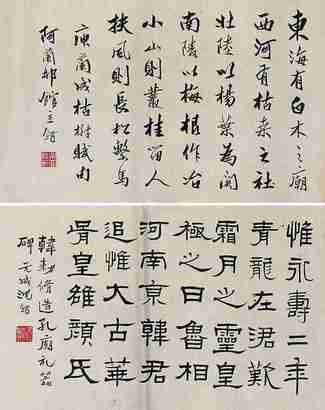 東海有白木之廟
西河有枯桑之社
北陸以楊葉為關
南陵以梅根作冶
小山則叢桂留人
扶風則長松繫馬
庾蘭成枯樹賦句
阿蘭那館主
惟永壽二年
青龍在涒歎
霜月之靈皇
極之日魯相
河南京韓君
追惟大古華
胥皇雄顏氏
韓勑修造孔廟禮器
碑